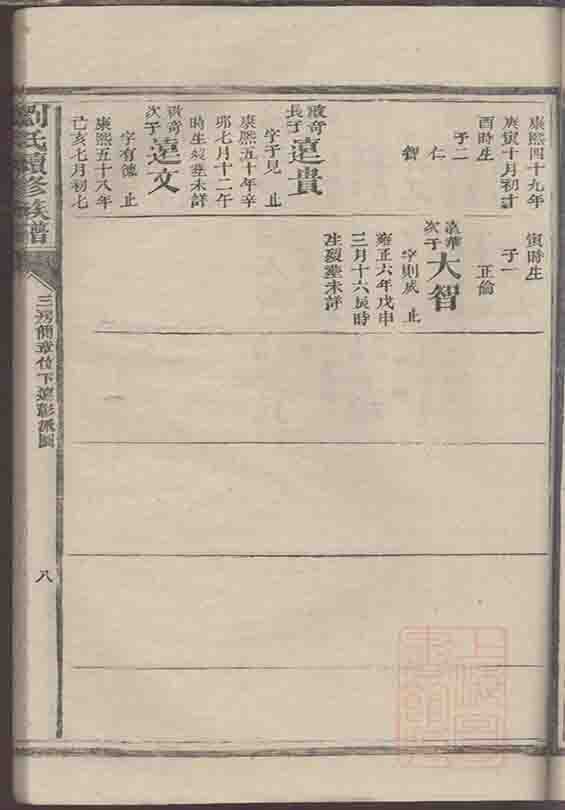 康熙四十九年
庚寅十月初十
酉時生
子二
仁
智
啟奇
長子
遠貴
字于見 止
康熙五十年辛
卯七月十二午
時生歿塟未詳
啟奇
次子
遠文
字有德 止
康熙五十八年
己亥七月初七
寅時生
子一
正倫
遠華
次子
大智
字則成 止
雍正六年戊申
三月十六辰時
生歿塟未詳
劉氏續修族譜
三房簡章位下遠彰派圖
八